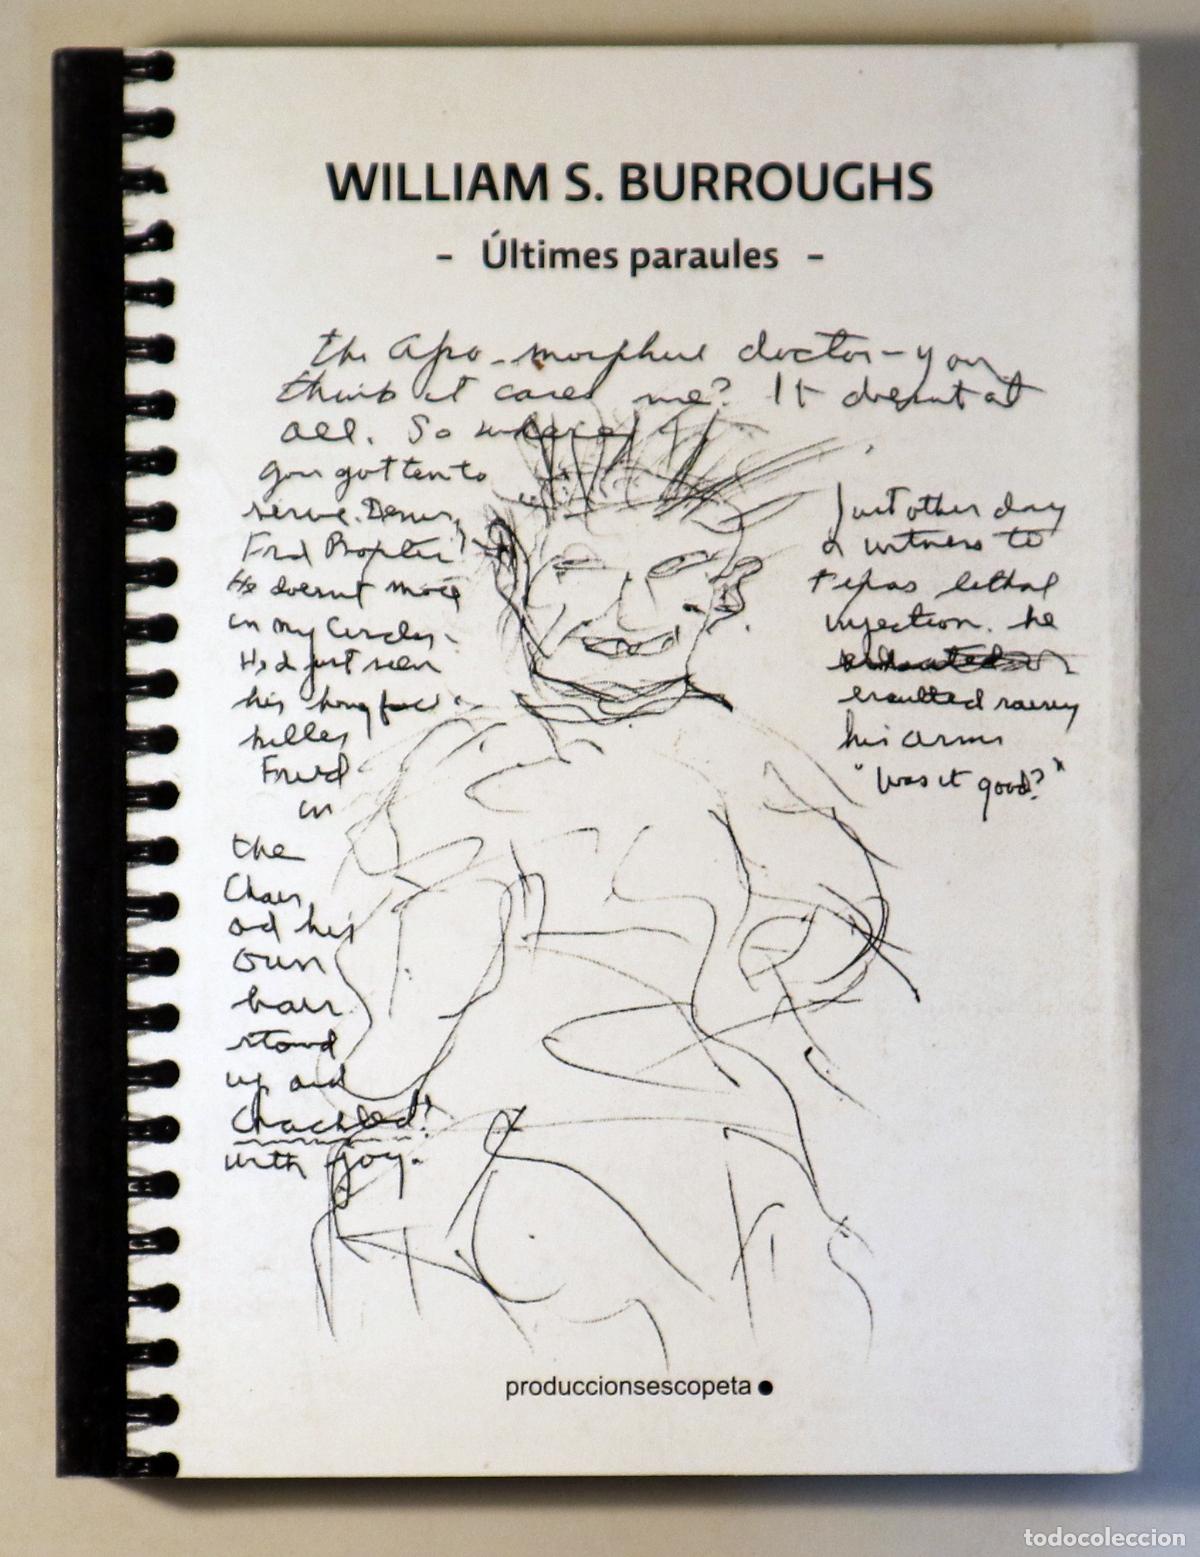 WILLIAM S. BURROUGHS
- Últimes paraules -
the Apo-morphine doctor - you
think it cares me? It doesnt at
all. So where
you got ten to
serve.
Fred
He doesnt move
in my Circles.
He d just seen
his
killer
Fried
in
the
Chair
and his
own
hair
stand
up and
Crackled!
with joy.
Just other day
a witness to
texas lethal
injection. he
exaulted
his arms
"Was it good?"
produccionsescopeta ●
todocoleccion